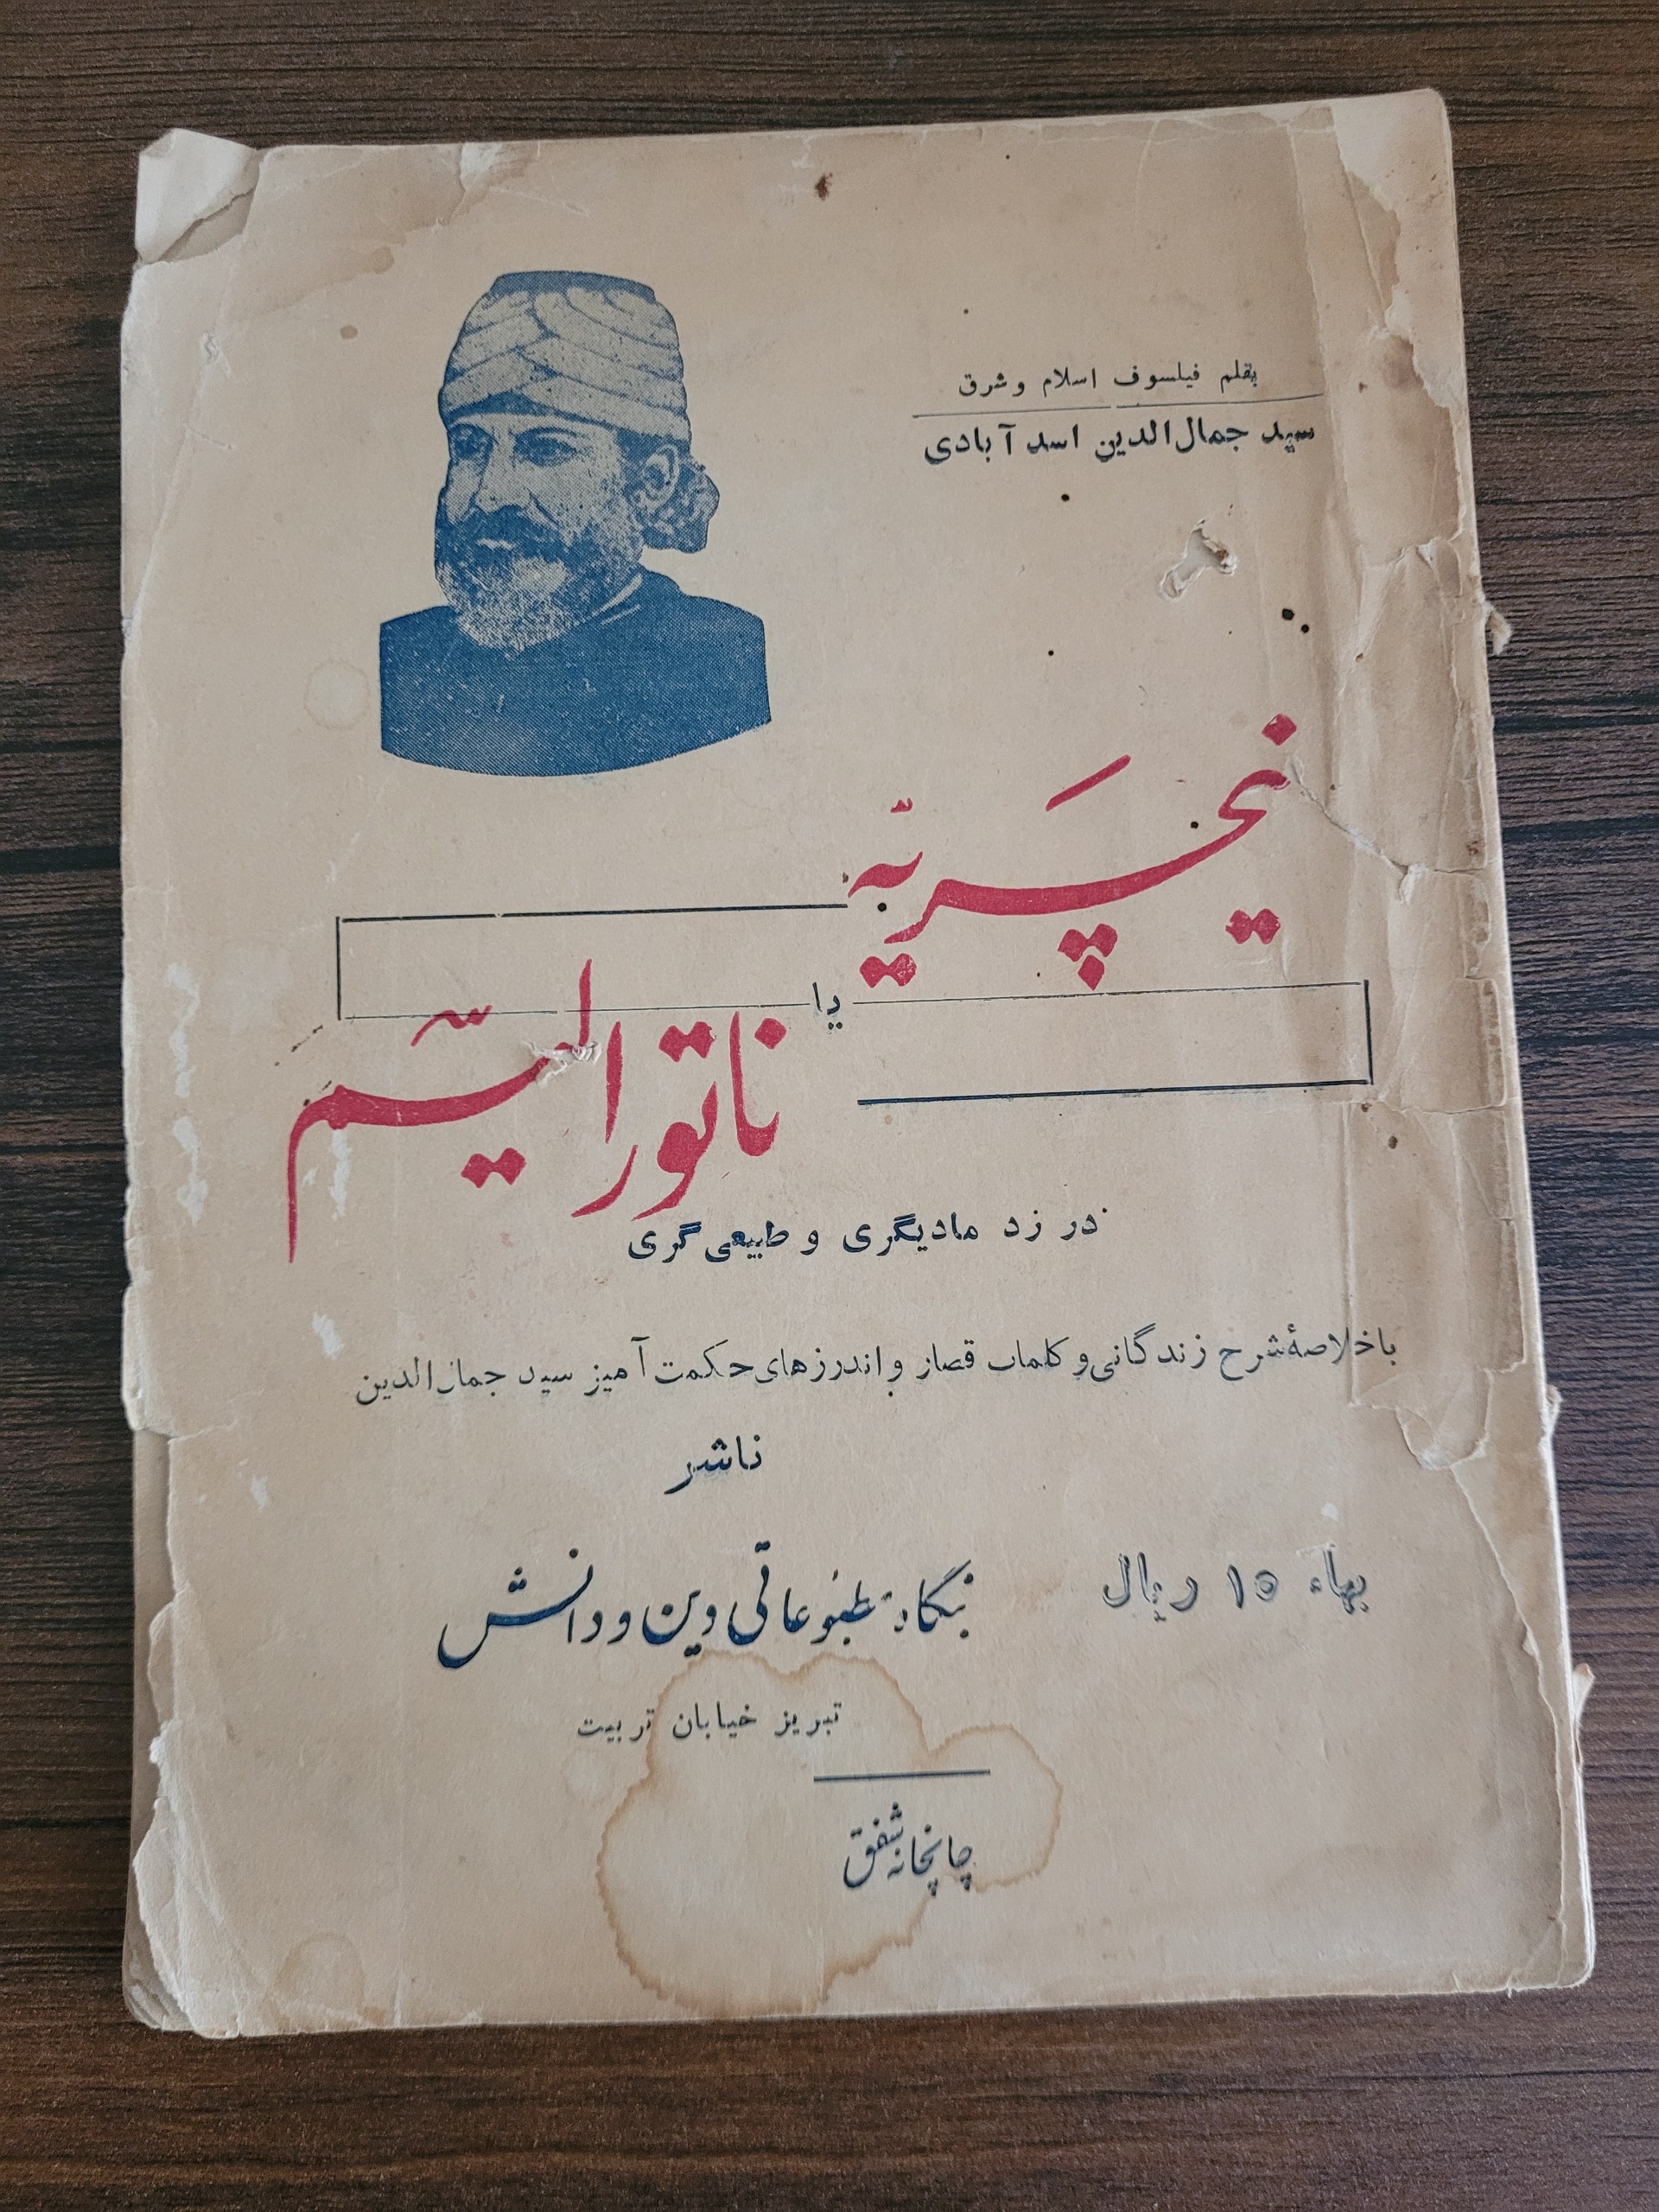 بقلم فیلسوف اسلام و شرق
سید جمال‌الدین اسد آبادی
نیچریّه
یا
ناتورالیسّم
در رد مادیگری و طبیعی گری
با خلاصهٔ شرح زندگانی و کلمات قصار و اندرزهای حکمت آمیز سید جمال‌الدین
ناشر
بنگاه مطبوعاتی دین و دانش
بهاء ۱۵ ریال
تبریز خیابان تربیت
چاپخانه شفق